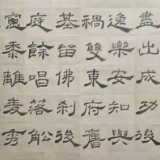 盡出成功後
逸樂安知與
禍雙東府舊
基留佛刹後
庭餘唱落船
窗黍離麥秀